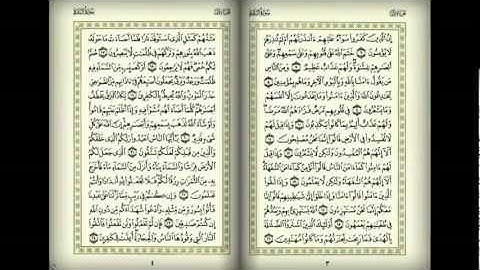 إِنَّ الَّذِينَ كَفَرُوا سَوَاءٌ عَلَيْهِمْ ءَأَنذَرْتَهُمْ أَمْ لَمْ تُنذِرْهُمْ
لَا يُؤْمِنُونَ ٦ خَتَمَ اللَّهُ عَلَىٰ قُلُوبِهِمْ وَعَلَىٰ سَمْعِهِمْ وَعَلَىٰ
أَبْصَٰرِهِمْ غِشَٰوَةٌ وَلَهُمْ عَذَابٌ عَظِيمٌ ٧ وَمِنَ النَّاسِ
مَن يَقُولُ ءَامَنَّا بِاللَّهِ وَبِالْيَوْمِ الْءَاخِرِ وَمَا هُم بِمُؤْمِنِينَ ٨
يُخَٰدِعُونَ اللَّهَ وَالَّذِينَ ءَامَنُوا وَمَا يَخْدَعُونَ إِلَّا أَنفُسَهُمْ
وَمَا يَشْعُرُونَ ٩ فِي قُلُوبِهِم مَّرَضٌ فَزَادَهُمُ اللَّهُ مَرَضًا
وَلَهُمْ عَذَابٌ أَلِيمٌ بِمَا كَانُوا يَكْذِبُونَ ١٠ وَإِذَا قِيلَ لَهُمْ
لَا تُفْسِدُوا فِي الْأَرْضِ قَالُوا إِنَّمَا نَحْنُ مُصْلِحُونَ ١١
أَلَا إِنَّهُمْ هُمُ الْمُفْسِدُونَ وَلَٰكِن لَّا يَشْعُرُونَ ١٢ وَإِذَا قِيلَ
لَهُمْ ءَامِنُوا كَمَا ءَامَنَ النَّاسُ قَالُوا أَنُؤْمِنُ كَمَا ءَامَنَ السُّفَهَاءُ
أَلَا إِنَّهُمْ هُمُ السُّفَهَاءُ وَلَٰكِن لَّا يَعْلَمُونَ ١٣ وَإِذَا لَقُوا
الَّذِينَ ءَامَنُوا قَالُوا ءَامَنَّا وَإِذَا خَلَوْا إِلَىٰ شَيَٰطِينِهِمْ قَالُوا
إِنَّا مَعَكُمْ إِنَّمَا نَحْنُ مُسْتَهْزِءُونَ ١٤ اللَّهُ يَسْتَهْزِئُ بِهِمْ وَيَمُدُّهُمْ
فِي طُغْيَٰنِهِمْ يَعْمَهُونَ ١٥ أُولَٰئِكَ الَّذِينَ اشْتَرَوُا الضَّلَٰلَةَ
بِالْهُدَىٰ فَمَا رَبِحَت تِّجَٰرَتُهُمْ وَمَا كَانُوا مُهْتَدِينَ ١٦
٣
مَثَلُهُمْ كَمَثَلِ الَّذِي اسْتَوْقَدَ نَارًا فَلَمَّا أَضَاءَتْ مَا حَوْلَهُ
ذَهَبَ اللَّهُ بِنُورِهِمْ وَتَرَكَهُمْ فِي ظُلُمَٰتٍ لَّا يُبْصِرُونَ ١٧
صُمٌّ بُكْمٌ عُمْيٌ فَهُمْ لَا يَرْجِعُونَ ١٨ أَوْ كَصَيِّبٍ مِّنَ السَّمَاءِ فِيهِ
ظُلُمَٰتٌ وَرَعْدٌ وَبَرْقٌ يَجْعَلُونَ أَصَٰبِعَهُمْ فِي ءَاذَانِهِم مِّنَ
الصَّوَٰعِقِ حَذَرَ الْمَوْتِ وَاللَّهُ مُحِيطٌ بِالْكَٰفِرِينَ ١٩ يَكَادُ الْبَرْقُ يَخْطَفُ
أَبْصَٰرَهُمْ كُلَّمَا أَضَاءَ لَهُم مَّشَوْا فِيهِ وَإِذَا أَظْلَمَ عَلَيْهِمْ قَامُوا
وَلَوْ شَاءَ اللَّهُ لَذَهَبَ بِسَمْعِهِمْ وَأَبْصَٰرِهِمْ إِنَّ اللَّهَ عَلَىٰ كُلِّ
شَيْءٍ قَدِيرٌ ٢٠ يَٰأَيُّهَا النَّاسُ اعْبُدُوا رَبَّكُمُ الَّذِي خَلَقَكُمْ
وَالَّذِينَ مِن قَبْلِكُمْ لَعَلَّكُمْ تَتَّقُونَ ٢١ الَّذِي جَعَلَ لَكُمُ
الْأَرْضَ فِرَٰشًا وَالسَّمَاءَ بِنَاءً وَأَنزَلَ مِنَ السَّمَاءِ مَاءً فَأَخْرَجَ
بِهِ مِنَ الثَّمَرَٰتِ رِزْقًا لَّكُمْ فَلَا تَجْعَلُوا لِلَّهِ أَندَادًا وَأَنتُمْ
تَعْلَمُونَ ٢٢ وَإِن كُنتُمْ فِي رَيْبٍ مِّمَّا نَزَّلْنَا عَلَىٰ عَبْدِنَا
فَأْتُوا بِسُورَةٍ مِّن مِّثْلِهِ وَادْعُوا شُهَدَاءَكُم مِّن دُونِ اللَّهِ
إِن كُنتُمْ صَٰدِقِينَ ٢٣ فَإِن لَّمْ تَفْعَلُوا وَلَن تَفْعَلُوا فَاتَّقُوا
النَّارَ الَّتِي وَقُودُهَا النَّاسُ وَالْحِجَارَةُ أُعِدَّتْ لِلْكَٰفِرِينَ ٢٤
٤